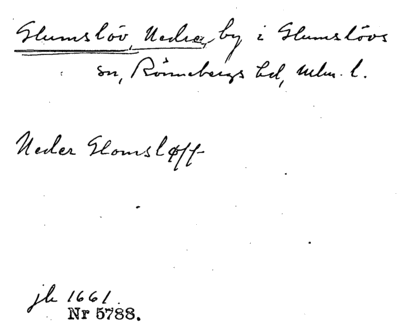 Glumslöv, Nedra, by i Glumslövs
sn, Rönnebergs hd, Mlm. l.
Neder Glomsløff
jb 1661.
Nr 5788.